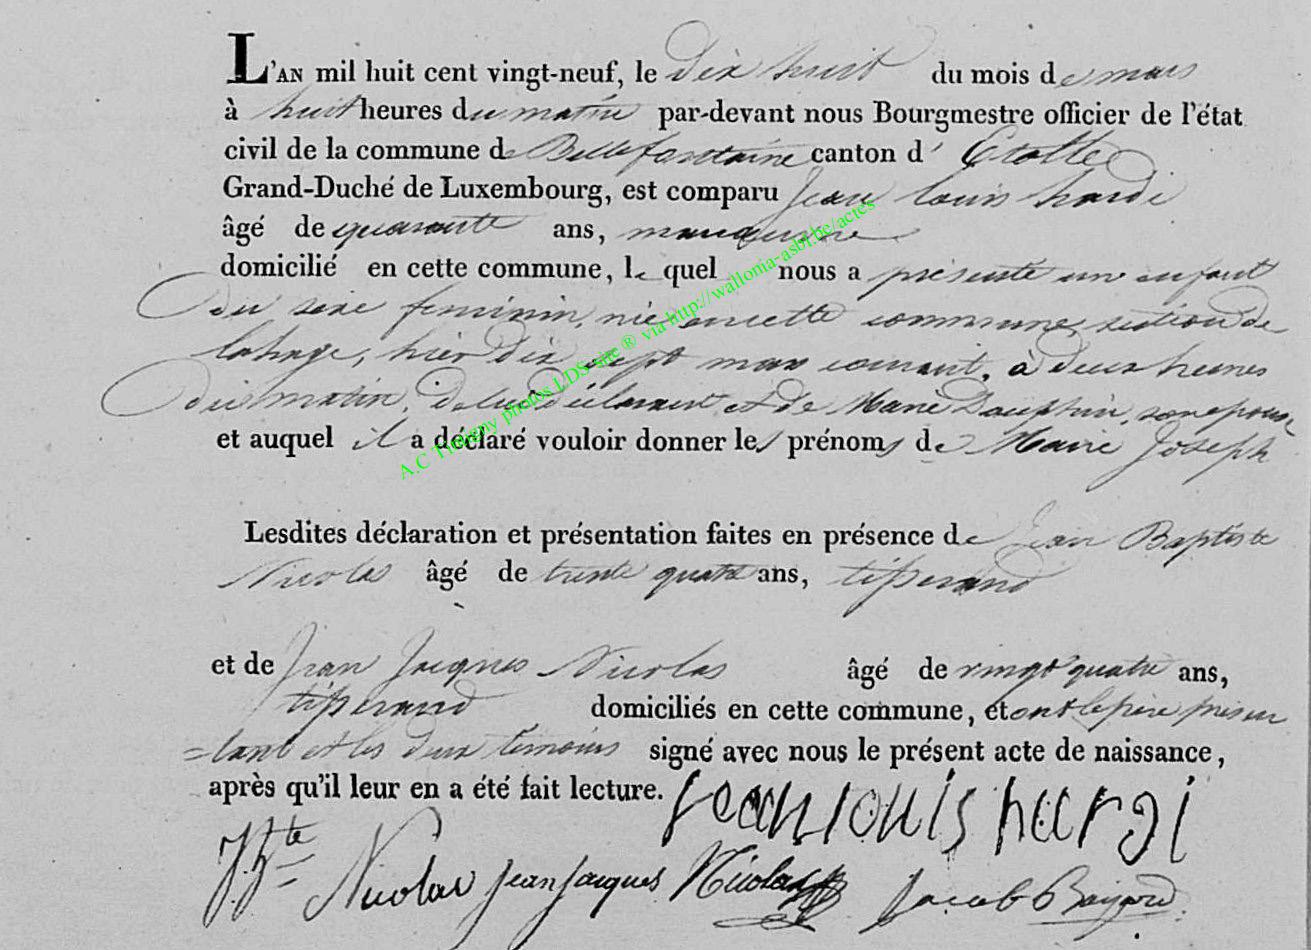 L'AN mil huit cent vingt-neuf, le dix huit du mois de mars
à huit heures du matin par-devant nous Bourgmestre officier de l'état
civil de la commune de Bellefontaine canton d'Etalle
Grand-Duché de Luxembourg, est comparu Jean Louis hardi
âgé de quarante ans, manœuvre
domicilié en cette commune, le quel nous a présenté un enfant
du sexe féminin, née en cette commune, section de
lahage, hier dix sept mars courant, à deux heures
du matin, de lui déclarant et de Marie Dauphin, son épouse
et auquel il a déclaré vouloir donner les prénoms de Marie Joseph
Lesdites déclaration et présentation faites en présence de Jean Baptiste
Nicolas âgé de trente quatre ans, tisserand
et de Jean Jacques Nicolas âgé de vingt quatre ans,
tisserand domiciliés en cette commune, et ont le père présen
=tant et les deux témoins signé avec nous le présent acte de naissance,
après qu'il leur en a été fait lecture. jean louis hardi
J Bte Nicolas jean jacques Nicolas Jacob
A.C Tintigny photos LDS site ® via http://wallonia-asbl.be/actes